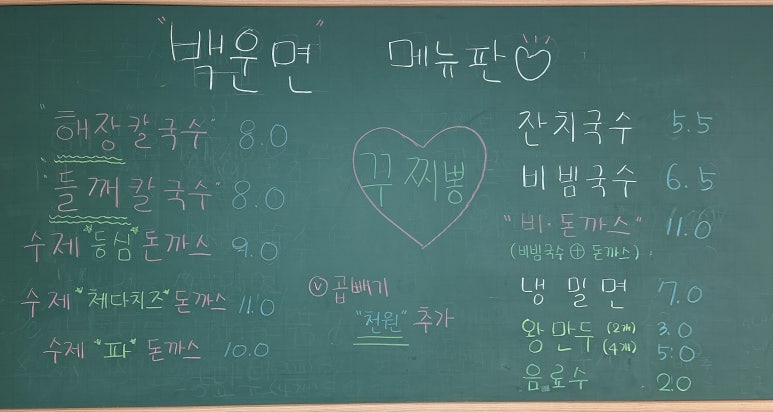 "백운면" 메뉴판
"해장칼국수" 8.0
"들깨칼국수" 8.0
수제 "등심" 돈까스 9.0
수제 "체다치즈" 돈까스 11.0
수제 "파" 돈까스 10.0
꾸찌뽕
ⓥ 곱빼기
"천원" 추가
잔치국수 5.5
비빔국수 6.5
"비·돈까스" 11.0
(비빔국수 ⊕ 돈까스)
냉밀면 7.0
왕만두 (2개) 3.0
(4개) 5.0
음료수 2.0